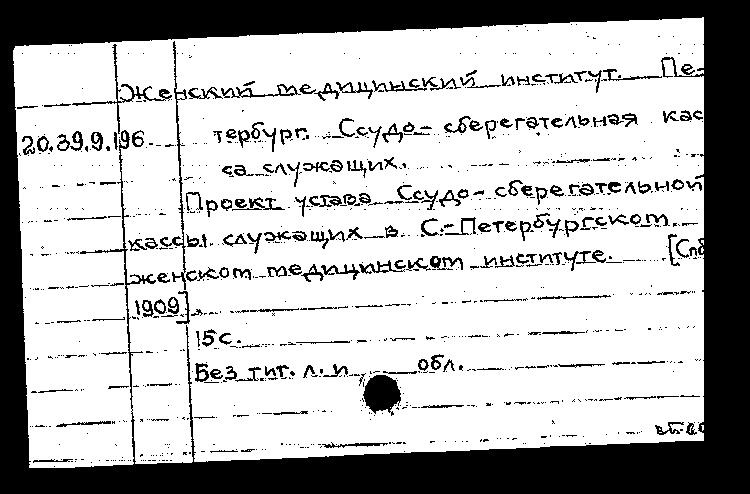 Женский медицинский институт. Пе-
20.39.9.196 тербург. Ссудо-сберегательная кас
са служащих.
Проект устава Ссудо-сберегательной
кассы служащих в С.-Петербургском
женском медицинском институте. [Спб
1909].
15 с.
Без тит. л. и обл.